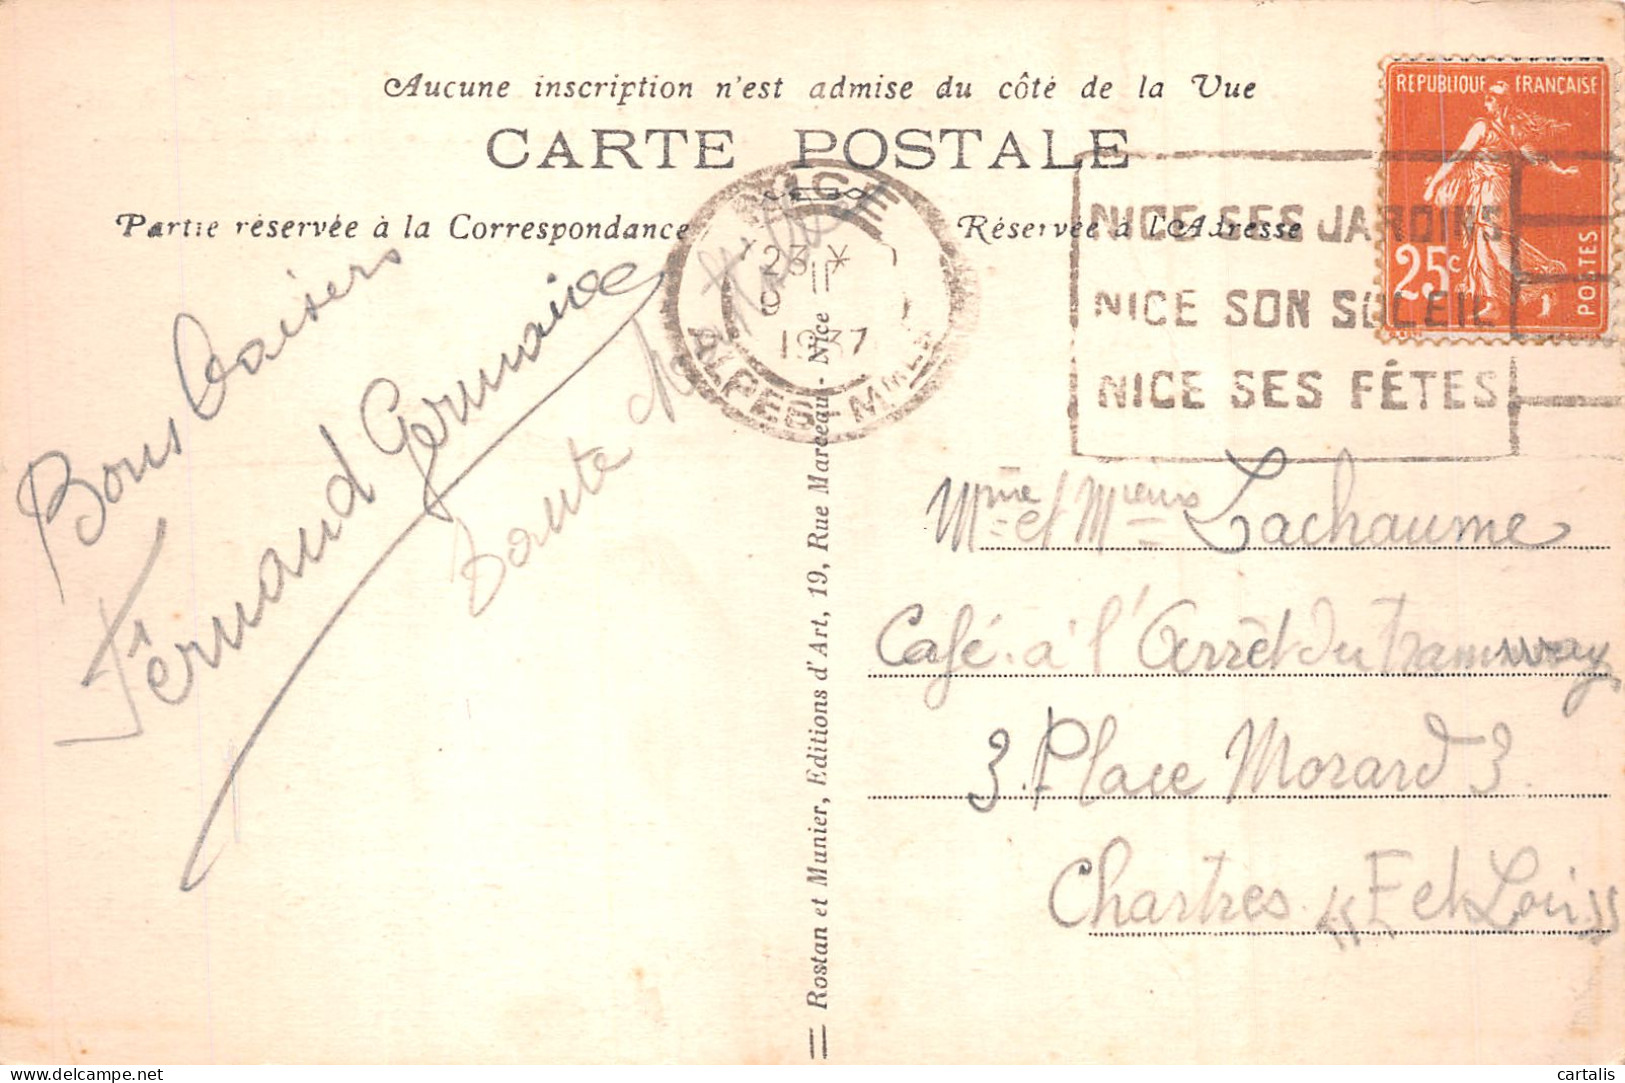 Aucune inscription n'est admise du côté de la Vue
CARTE POSTALE
Partie réservée à la Correspondance
Réservée à l'Adresse
REPUBLIQUE FRANÇAISE
25c
POSTES
NICE
23 *
II
1937
ALPES-MMES
NICE SES JARDINS
NICE SON SOLEIL
NICE SES FÊTES
Bons baisers
Fernand Germaine
Tante
Mme et Mieurs Lachaume
Café à l'Arrêt du Tramway
3. Place Morard 3.
Chartres (E et Loir)
Rostan et Munier, Editions d'Art, 19, Rue Marceau - Nice
delcampe.net
cartalis